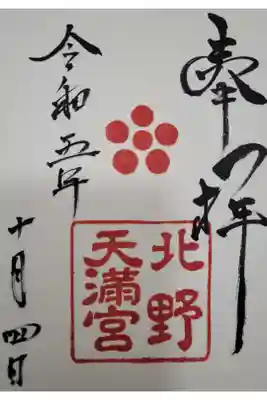 奉拝
北野
天満宮
令和五年
十月四日